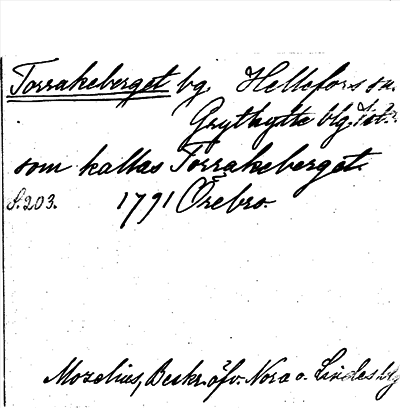 Torrakeberget bg. Hellefors sn.
Grythytte blg.
som kallas Torrakeberget.
S. 203. 1791 Örebro.
Mozelius, Beskr. öfv. Nora o. Lindes blg